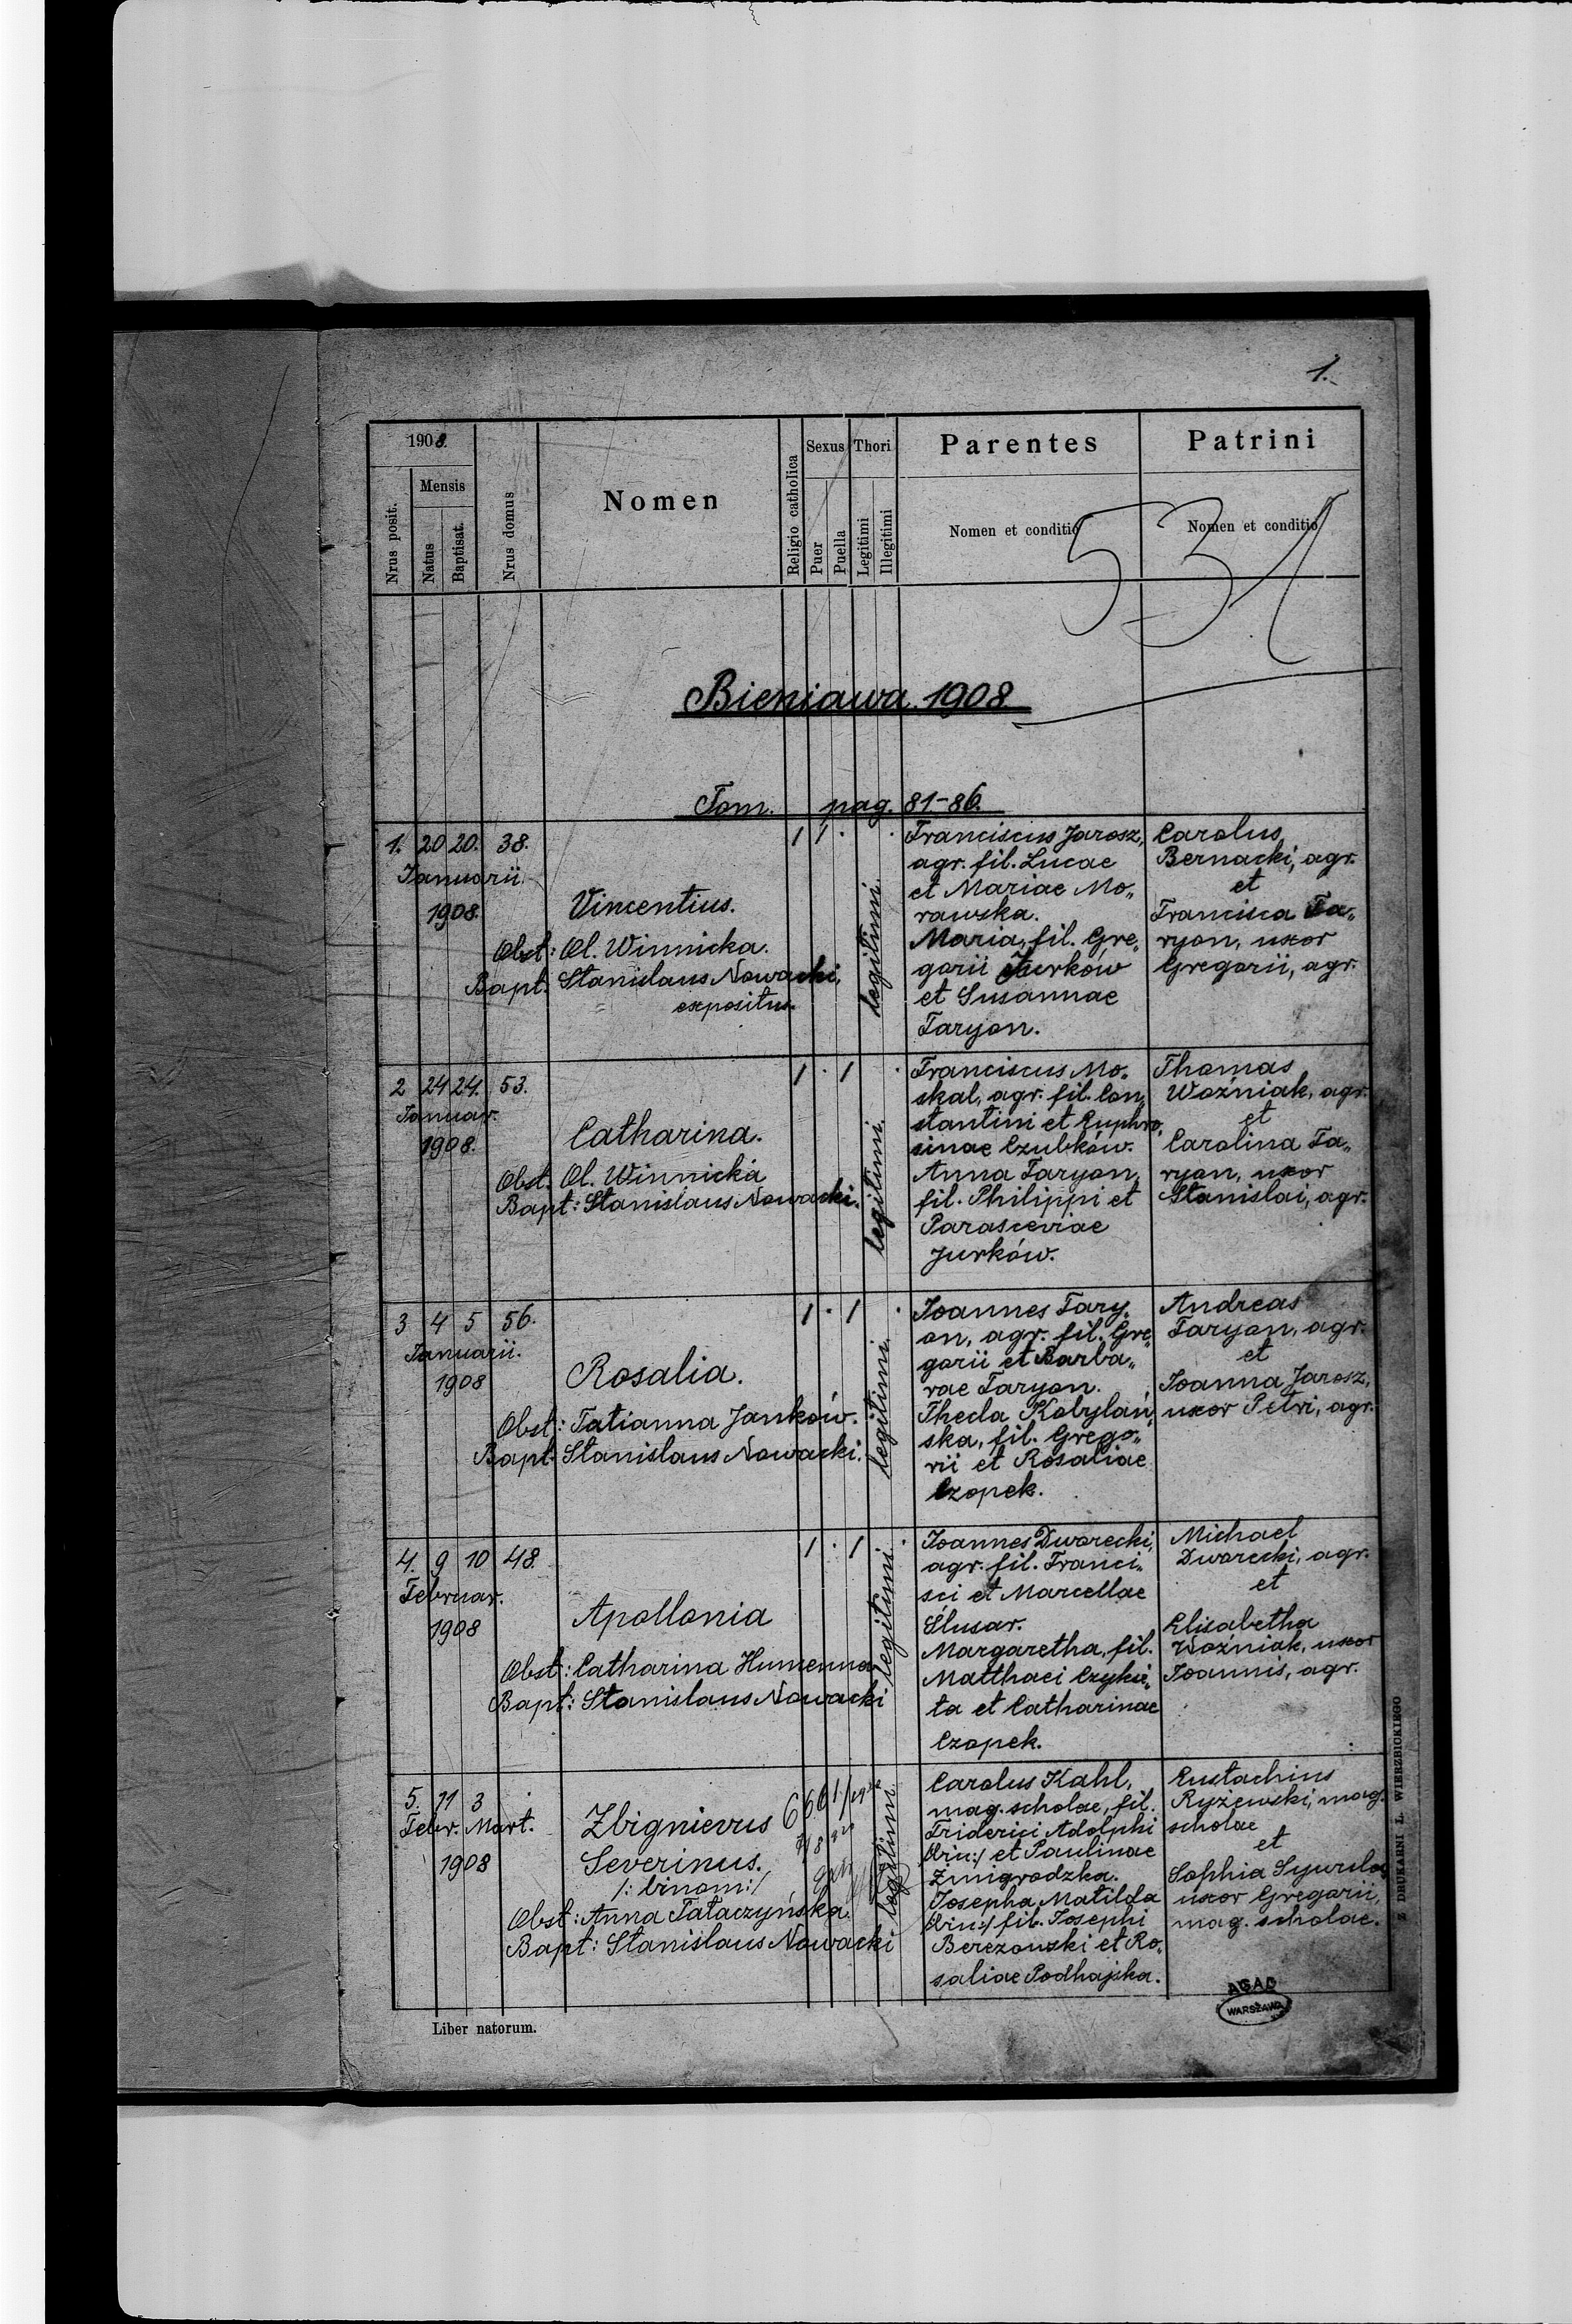 1.
1908.
Nrus posit.
Mensis
Natus
Baptisat.
Nrus domus
Nomen
Religio catholica
Sexus
Puer
Puella
Thori
Legitimi
Illegitimi
Parentes
Nomen et conditio
Patrini
Nomen et conditio
Bieniawa 1908
Tom. pag. 81-86.
1. 20 20. 38.
Januarii
1908.
Vincentius.
Obst: Ol. Winnicka.
Bapt. Stanislaus Nowacki,
expositus.
1 1 ·
legitimi.
Franciscus Jarosz,
agr. fil. Lucae
et Mariae Mo„
rawska.
Maria, fil. Gre„
gorii Jurków
et Susannae
Taryon.
Carolus
Bernacki, agr.
et
Francisca Ta„
ryon, uxor
Gregorii, agr.
2 24 24. 53.
Januar.
1908.
Catharina.
Obst. Ol. Winnicka
Bapt: Stanislaus Nowacki.
1 · 1
legitimi.
Franciscus Mo„
skal, agr. fil. Con„
stantini et Euphro„
sinae Czubków.
Anna Taryon,
fil. Philippi et
Parasceviae
Jurków.
Thomas
Woźniak, agr.
et
Carolina Ta„
ryon, uxor
Stanislai, agr.
3 4 5 56.
Januarii.
1908
Rosalia.
Obst: Tatianna Janków.
Bapt. Stanislaus Nowacki.
1 · 1
legitimi.
Joannes Tary„
on, agr. fil. Gre„
gorii et Barba„
rae Taryon.
Thecla Kobylań„
ska, fil. Grego„
rii et Rosaliae
Czopek.
Andreas
Taryon, agr.
et
Joanna Jarosz,
uxor Petri, agr.
4. 9 10 48.
Februar.
1908
Apollonia
Obst: Catharina Humenna
Bapt: Stanislaus Nowacki
1 · 1
legitimi.
Joannes Dworecki,
agr. fil. Franci„
sci et Marcellae
Ślusar.
Margaretha, fil.
Matthaei Czykie„
ta et Catharinae
Czopek.
Michael
Dworecki, agr.
et
Elisabetha
Woźniak, uxor
Joannis, agr.
5. 11 3
Febr. Mart.
1908
Zbignievus
Severinus.
/: binom:/
Obst: Anna Tataczyńska.
Bapt: Stanislaus Nowacki
legitimi.
Carolus Kahl,
mag. scholae, fil.
Friderici Adolphi
/bin:/ et Paulinae
Żmigrodzka.
Josepha Matilda
/bin:/ fil. Josephi
Berezowski et Ro„
saliae Podhajska.
Eustachius
Ryżewski, mag.
scholae
et
Sophia
uxor Gregorii,
mag. scholae.
Liber natorum.
AGAD
WARSZAWA
Z DRUKARNI L. WIERZBICKIEGO